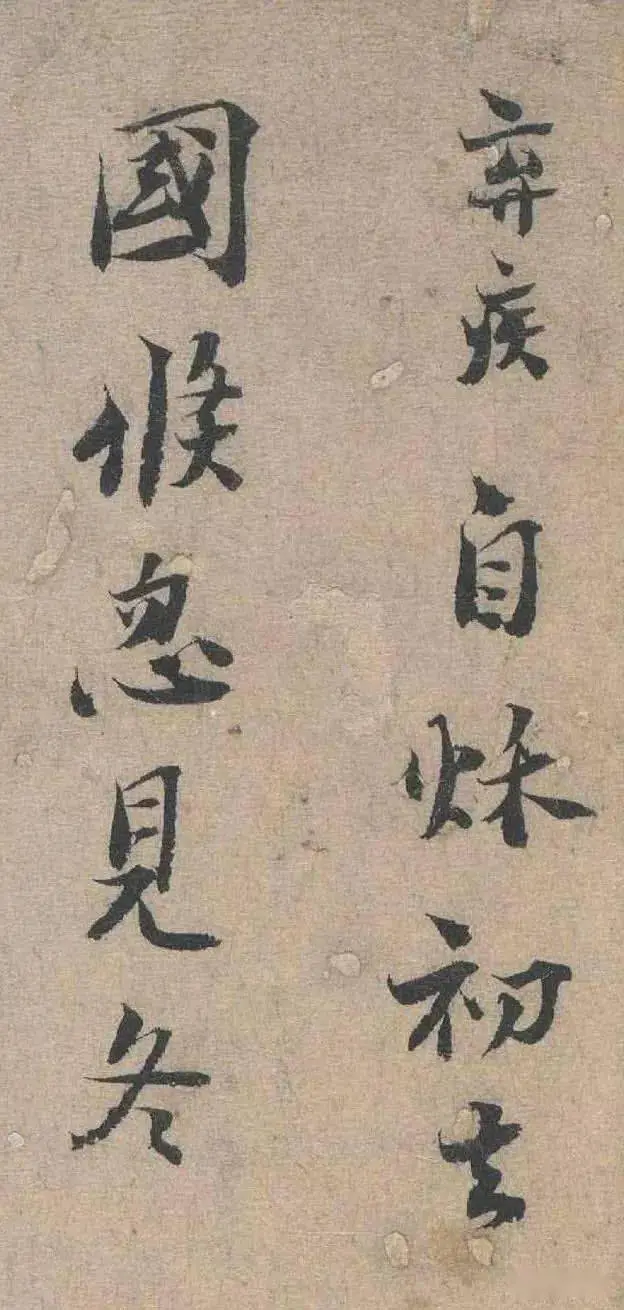 棄疾自秌初去
國倏忽見冬